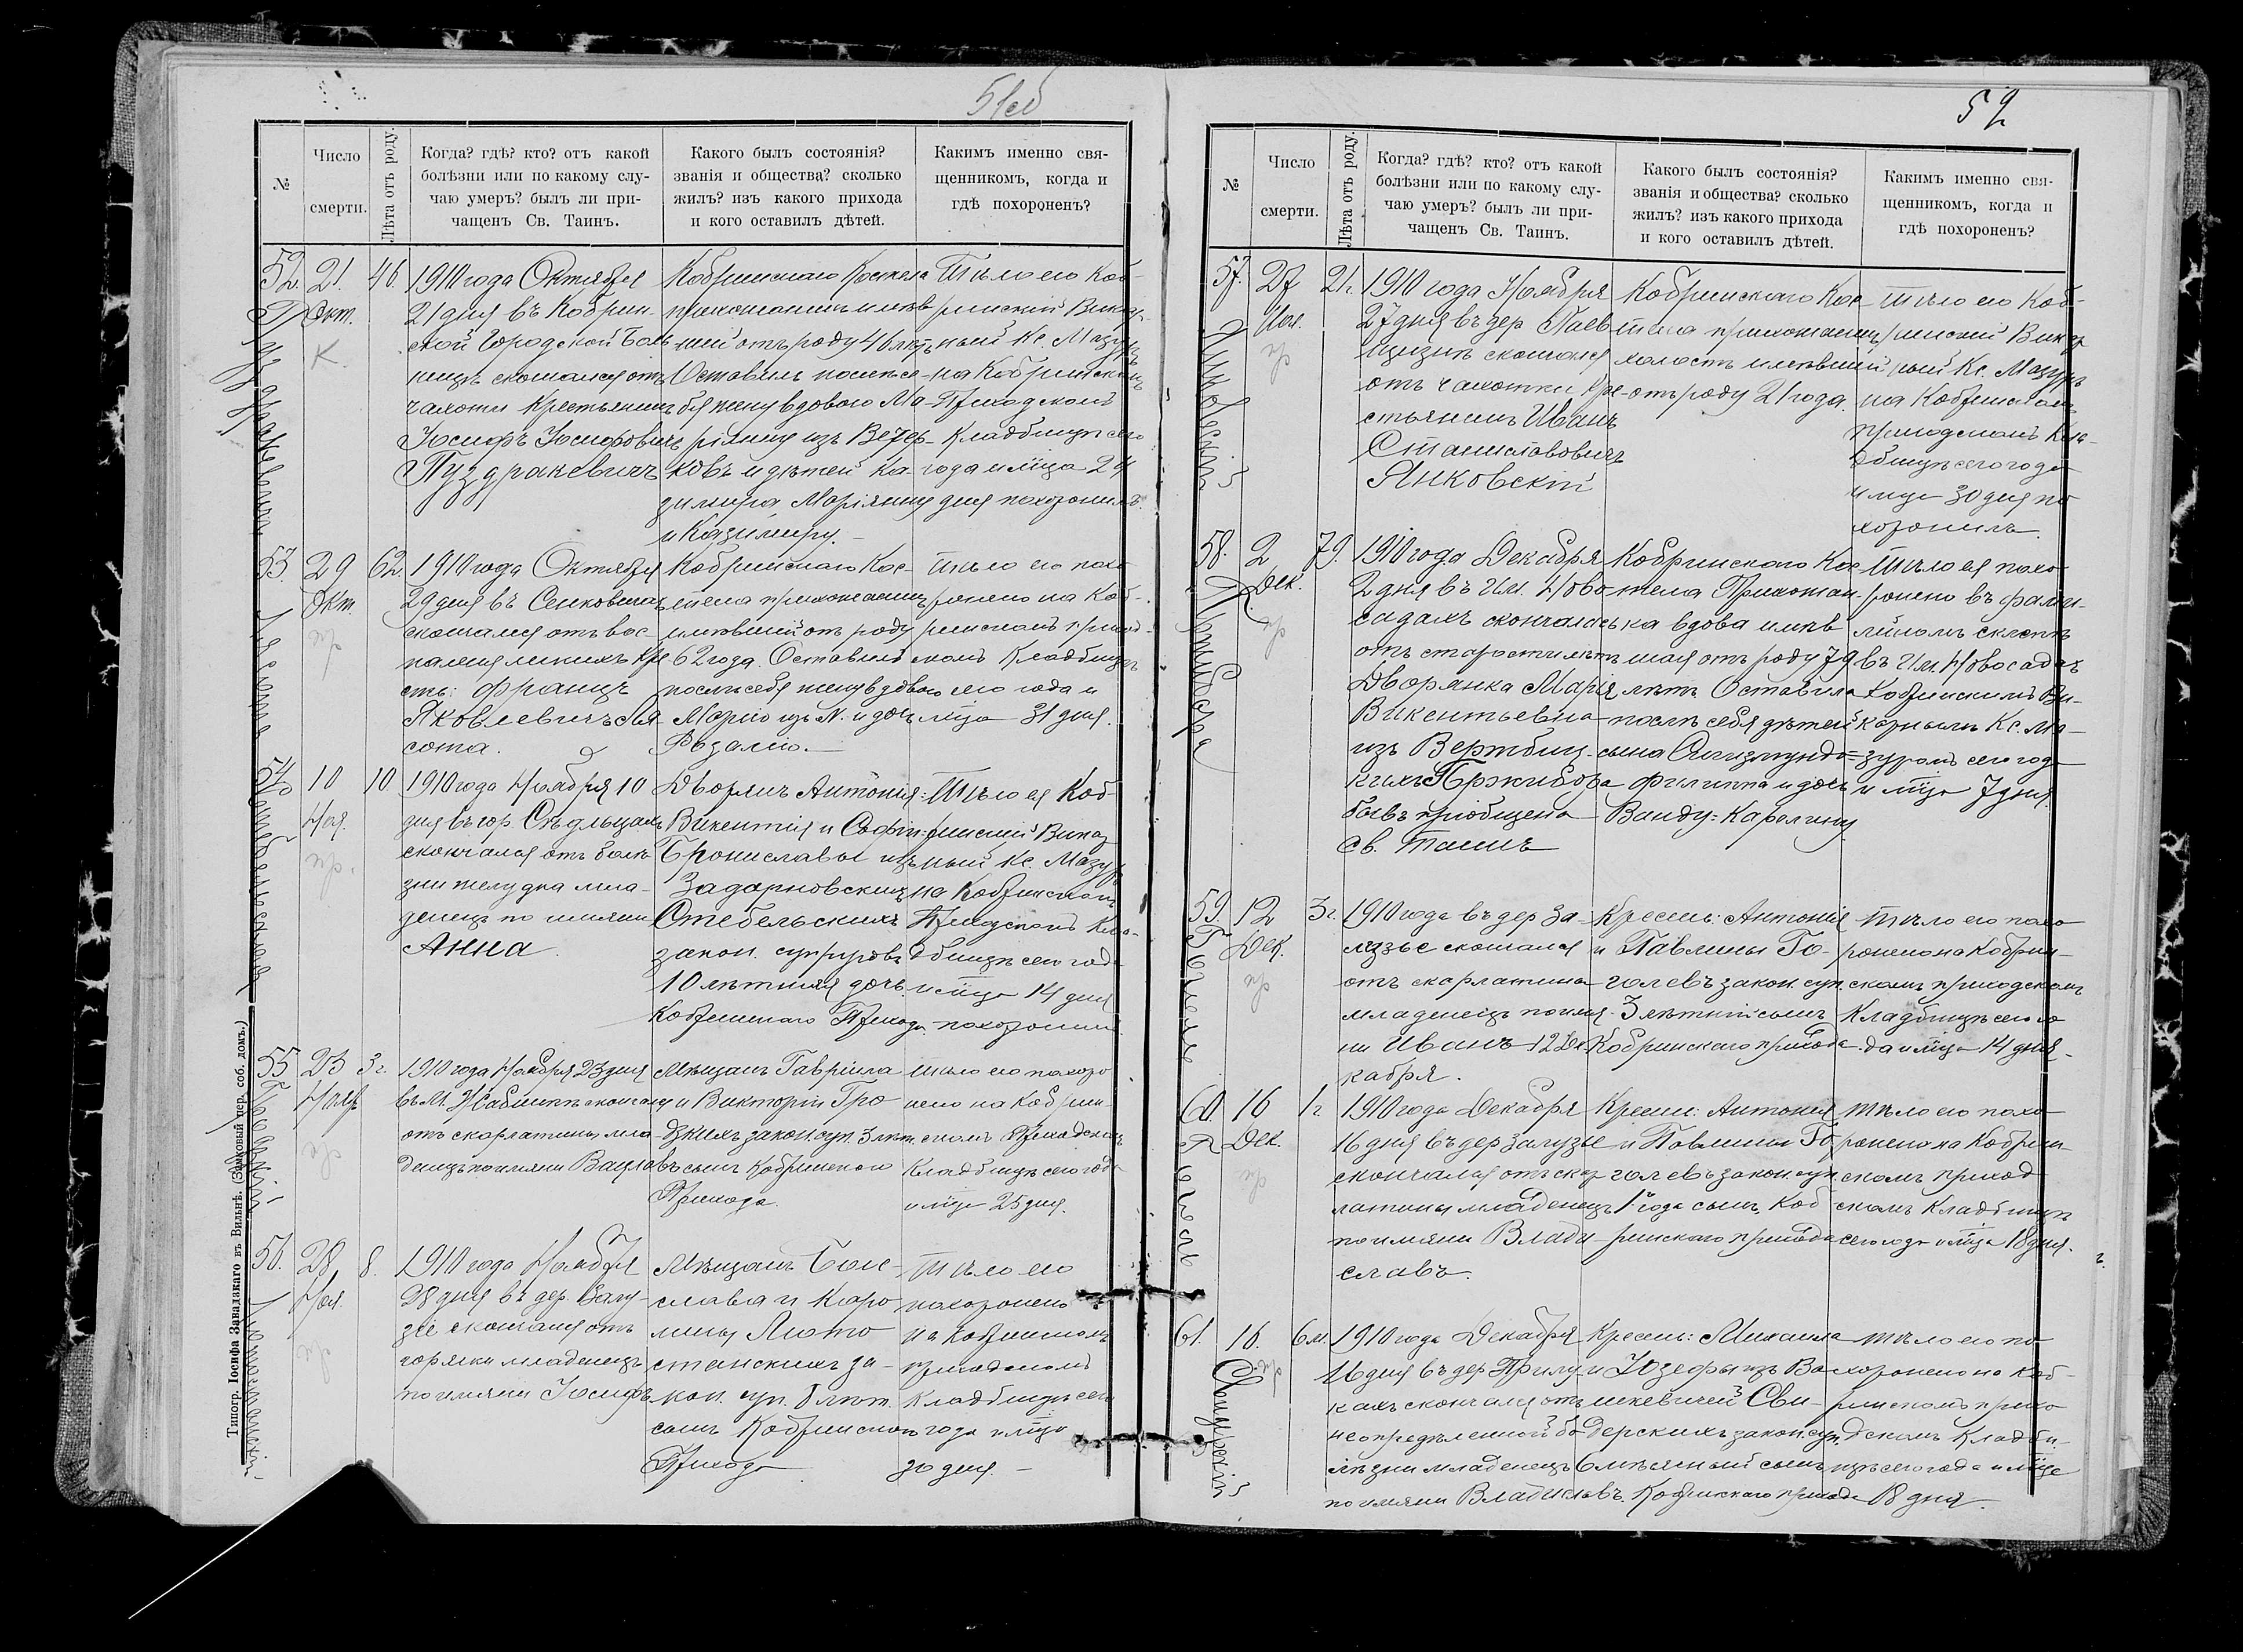 51об
№
Число
смерти.
Лѣта отъ роду.
Когда? гдѣ? кто? отъ какой
болѣзни или по какому слу-
чаю умеръ? былъ ли при-
чащенъ Св. Таинъ.
Какого былъ состоянія?
званія и общества? сколько
жилъ? изъ какого прихода
и кого оставилъ дѣтей.
Какимъ именно свя-
щенникомъ, когда и
гдѣ похороненъ?
52.
Пуздракевичъ
21.
Окт.
К.
46.
1910 года Октября
21 дня въ Кобрин-
ской Городской Боль
ницѣ скончался отъ
чахотки крестьянинъ
Іосифъ Іосифовичъ
Пуздракевичъ
Кобринскаго Костела
прихожанинъ имѣв
шій отъ роду 46 лѣтъ
Оставилъ послѣ се-
бя жену вдовою Ма-
ріянну изъ
ковъ и дѣтей Ка-
зимира, Маріянну
и Казимиру. -
Тѣло его Коб-
ринскій Викар-
ный Кс. Мазуръ
на Кобринскомъ
Приходскомъ
Кладбищѣ сего
года и мца 24
дня похоронилъ.
53.
29
Окт
пр
62.
1910 года Октября
29 дня въ
скончался отъ вос-
паленія легкихъ Кре
ст: Францъ
Яковлевичъ Ля
сота.
Кобринскаго Кос-
тела прихожанинъ
имѣвшій отъ роду
62 года. Оставилъ
послѣ себя жену вдовою
Марію изъ N. и дочь
Розалію.-
Тѣло его похо
ронено на Коб-
ринскомъ приход-
скомъ Кладбищѣ
сего года и
мца 31 дня.
54.
Отебельская
10
Ноя.
пр.
10
1910 года Ноября 10
дня въ гор. Сѣдльцахъ
скончалась отъ болѣ
зни желудка мла-
денецъ по имени
Анна
Дворянъ Антонія:
Викентія и Софіи:
Брониславы изъ
Задарновскихъ
Отебельскихъ
закон. супруговъ
10 лѣтняя дочь
Кобринскаго Прихода.
Тѣло ея Коб-
ринскій Викар
ный Кс. Мазуръ
на Кобринскомъ
Приходскомъ Кла-
дбищѣ сего года
и мца 14 дня
похоронилъ.
55
23
Нояб
пр
3 г.
1910 года Ноября 23 дня
въ М. Жабинкѣ скончался
отъ скарлатины мла-
денецъ по имени Вацлавъ
Мѣщанъ Гавріила
и Викторіи Гро
дзкихъ закон. суп. 3 лѣт.
сынъ Кобринскаго
Прихода.
Тѣло его похоро
нено на Кобрин-
скомъ Приходскомъ
Кладбищѣ сего года
и мца 25 дня.
56.
28
Ноя.
пр
8.
1910 года Ноября
28 дня въ дер. Залу-
зьѣ скончался отъ
горячки младенецъ
по имени Іосифъ
Мѣщанъ Боле-
слава и Каро
лины Люто
станскихъ за-
кон. суп. 8 лѣт.
сынъ Кобринскаго
Прихода
Тѣло его
похоронено
на Кобринскомъ
приходскомъ
Кладбищѣ сего
года и мца
30 дня. -
Типогр. Іосифа Завадзкаго въ Вильнѣ. (Замковый пер. соб. домъ.)
52
№
Число
смерти.
Лѣта отъ роду.
Когда? гдѣ? кто? отъ какой
болѣзни или по какому слу-
чаю умеръ? былъ ли при-
чащенъ Св. Таинъ.
Какого былъ состоянія?
званія и общества? сколько
жилъ? изъ какого прихода
и кого оставилъ дѣтей.
Какимъ именно свя-
щенникомъ, когда и
гдѣ похороненъ?
57.
Янковскій
27
Ноя.
пр
21 г.
1910 года Ноября
27 дня въ дер
скончался
отъ чахотки Кре-
стьянинъ Иванъ
Станиславовичъ
Янковскій
Кобринскаго Кос-
тела прихожанинъ
холостъ имѣвшій
отъ роду 21 года.
Тѣло его Коб-
ринскій Викар
ный Кс. Мазуръ
на Кобринскомъ
приходскомъ Кла-
дбищѣ сего года
и мца 30 дня по
хоронилъ
58.
Пржибора
2
Дек.
пр
79.
1910 года Декабря
2 дня въ Им. Ново
садахъ скончалась
отъ старости лѣтъ
Дворянка Марія
Викентьевна
изъ Вертбиц-
кихъ Пржибора
бывъ пріобщена
Св. Таинъ
Кобринскаго Кос
тела Прихожан-
ка вдова имѣв
шая отъ роду 79
лѣтъ Оставила
послѣ себя дѣтей
сына Сигизмунда=
Филиппа и дочь
Ванду=Каролину.
Тѣло ея похо
ронено въ фами-
лійномъ склепѣ
въ Им. Новосадахъ
Кобринскимъ Ви-
карнымъ Кс. Ма-
зуромъ сего года
и мца 7 дня.
59.
Гоголь
12
Дек.
пр
3 г.
1910 года въ дер За-
лузье скончался
отъ скарлатины
младенецъ по име-
ни Иванъ 12 Де
кабря.
Кресть: Антонія
и Павлины Го-
голевъ закон. суп.
3 лѣтній сынъ
Кобринскаго прихода.
Тѣло его похо
ронено на Кобрин-
скомъ приходскомъ
Кладбищѣ сего го
да и мца 14 дня.
60.
Гоголь
16
Дек.
пр
1 г
1910 года Декабря
16 дня въ дер Залузье
скончался отъ скар
латины младенецъ
по имени Влади-
славъ.
Кресть: Антонія
и Павлины Го
голевъ закон. суп.
1 года сынъ Коб
ринскаго прихода
Тѣло его похо
ронено на Кобрин-
скомъ приход
скомъ Кладбищѣ
сего года и мца 18 дня.
61.
Свидерскій
16.
пр
6 м.
1910 года Декабря
16 дня въ дер Прилу-
кахъ скончался отъ
неопредѣленной бо
лѣзни младенецъ
по имени Владиславъ.
Кресть: Михаила
и Юзефы изъ Ва
шкевичей Сви-
дерскихъ закон. суп.
6 мѣсячный сынъ
Кобринскаго прихода
Тѣло его по
хоронено на Коб-
ринскомъ прихо
дскомъ Кладби-
щѣ сего года и мца
18 дня.